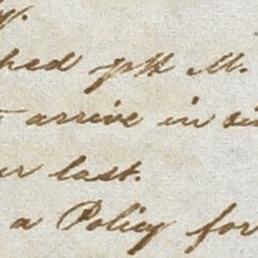 y.
hed pr M.
arrive in si
ur last.
a Policy for